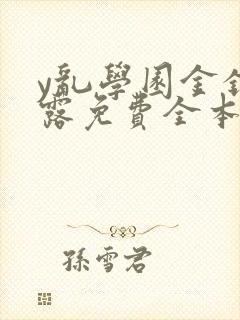 y亂學園全
露免費全本
孫雪君